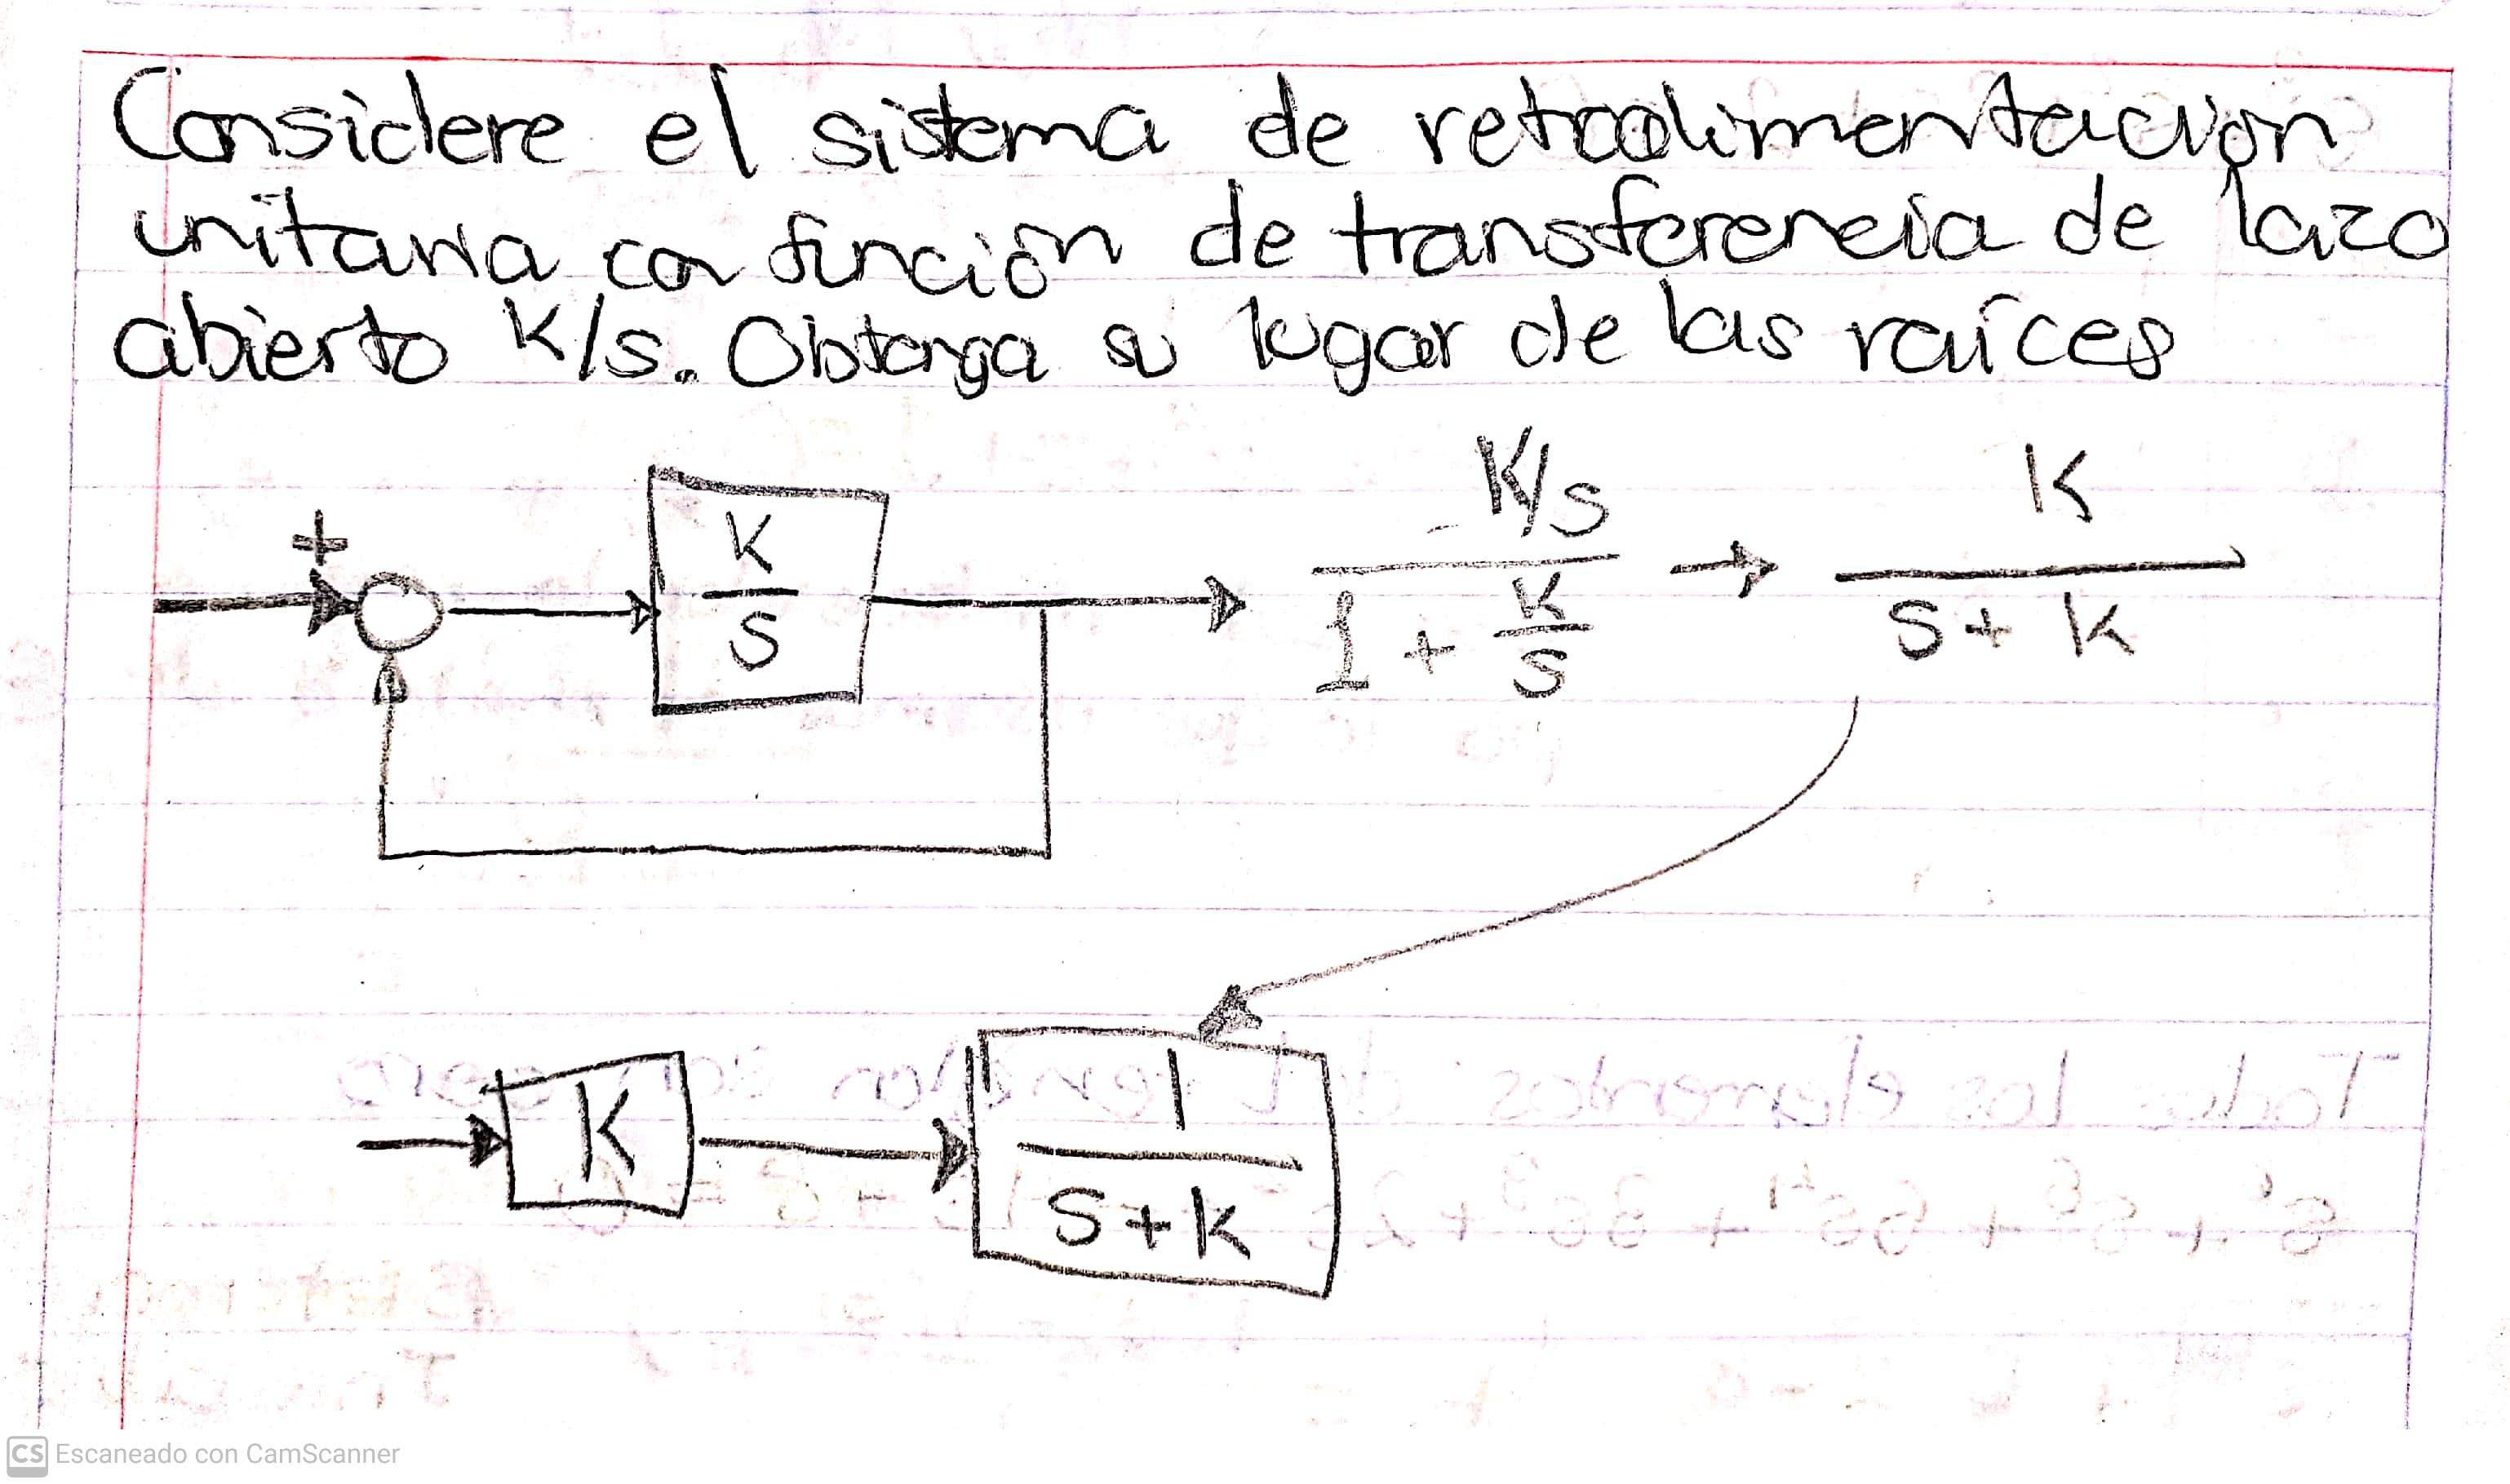 Considere el sistema de retroalimentación
unitaria con función de transferencia de lazo
abierto K/s. Obtenga su lugar de las raíces
+
K
s
K/s
1 + K/s
→
K
s + k
K
1
s + k
CS Escaneado con CamScanner